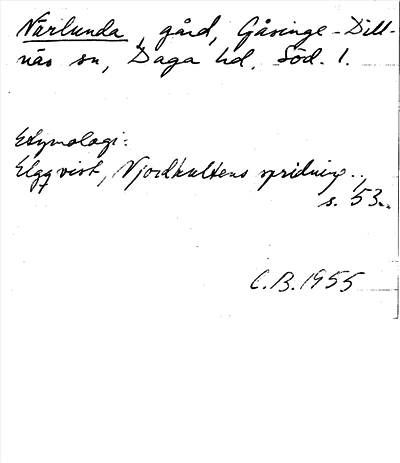 Närlunda, gård, Gåsinge-Dill-
näs sn, Daga hd, Söd. l.
Etymologi:
Elgqvist, Njordkultens spridning..,
s. 53..
C.B. 1955